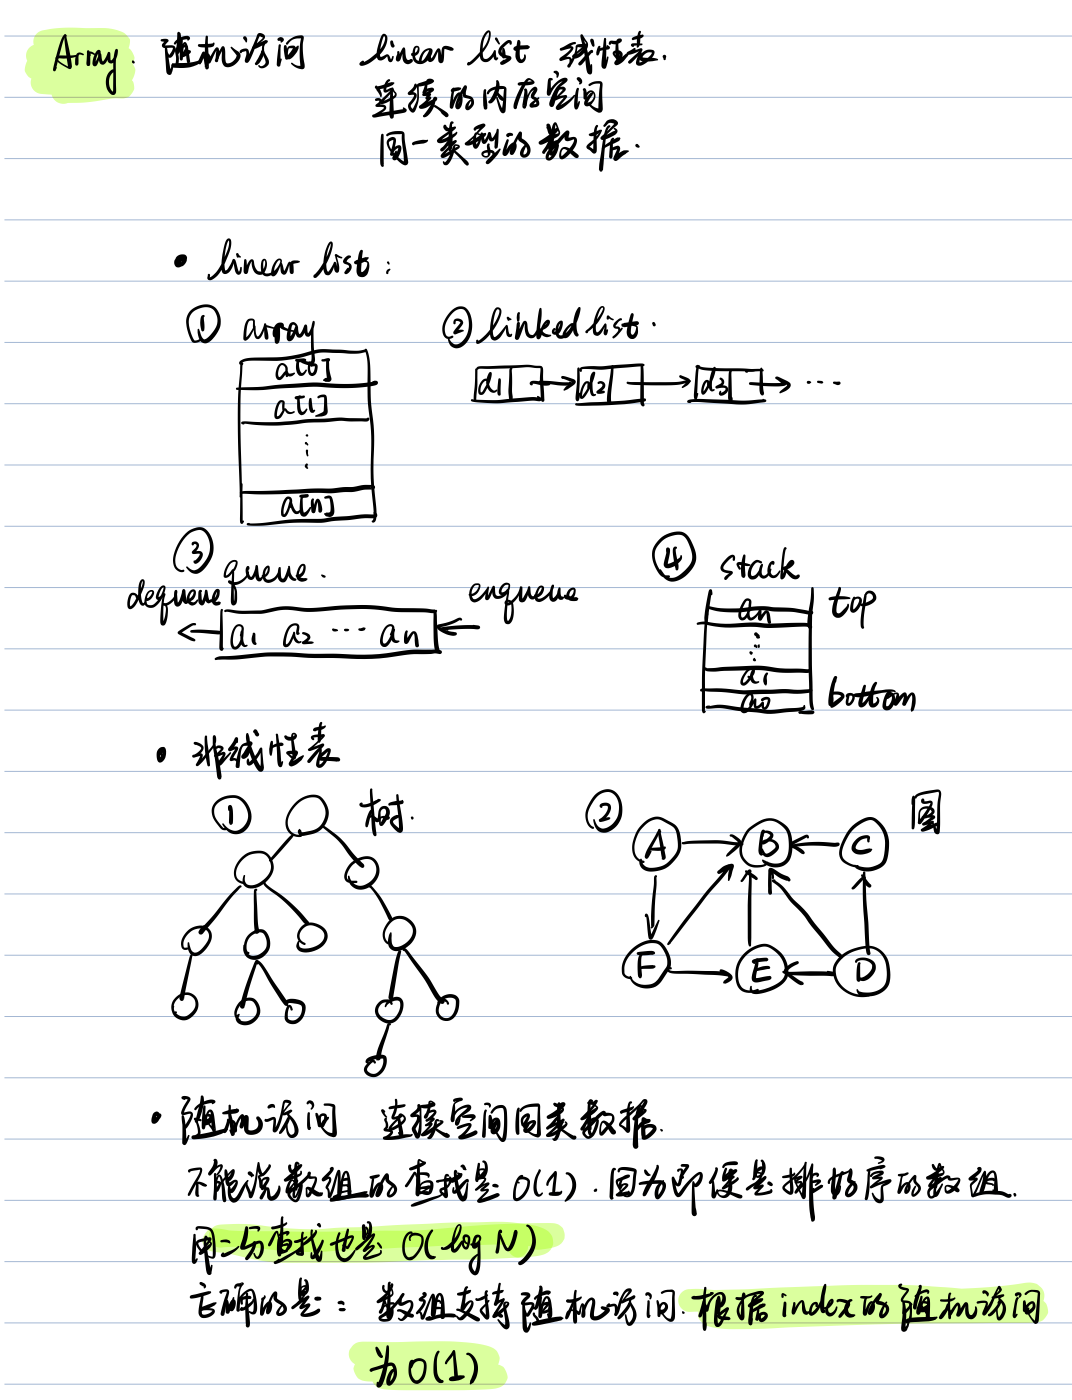 Array. 随机访问 linear list 线性表.
连续的内存空间
同一类型的数据.
• linear list :
① array ② linked list .
a[0]
d1 d2 d3 ...
a[1]
⋮
a[n]
③ queue . ④ stack
dequeue enqueue
an top
a1 a2 ... an
⋮
a1
a0 bottom
• 非线性表
① 树. ② 图
A B C
F E D
• 随机访问 连续空间同类数据.
不能说数组的查找是 O(1) . 因为即便是排好序的数组.
用二分查找也是 O(log N)
正确的是: 数组支持随机访问. 根据 index 的随机访问
为 O(1)